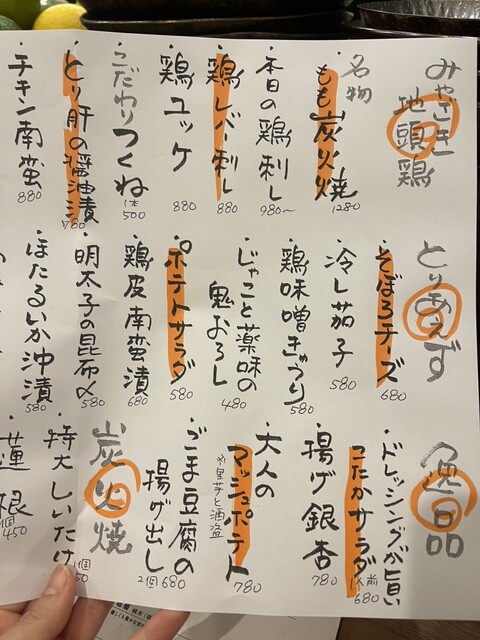 みやざき地頭鶏
名物
もも炭火焼
1280
本日の鶏刺し
980~
鶏レバ刺し
880
鶏ユッケ
880
こだわりつくね
1本500
とり肝の醤油漬
780
チキン南蛮
880
とりあえず
そぼろチーズ
680
冷し茄子
580
鶏味噌きゅうり
580
じゃこと薬味の
鬼おろし
480
ポテトサラダ
580
鶏皮南蛮漬
680
明太子の昆布〆
580
ほたるいか沖漬
580
逸品
ドレッシングが旨い
こたかサラダ
1人前
680
揚げ銀杏
780
大人の
マッシュポテト
※里芋と酒盗
780
ごま豆腐の
揚げ出し
2個680
炭火焼
特大しいたけ
1個
蓮根
450